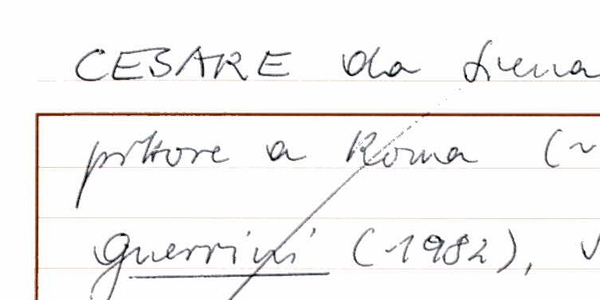 CESARE da Siena
pittore a Roma (~
Guerrini (1982), V